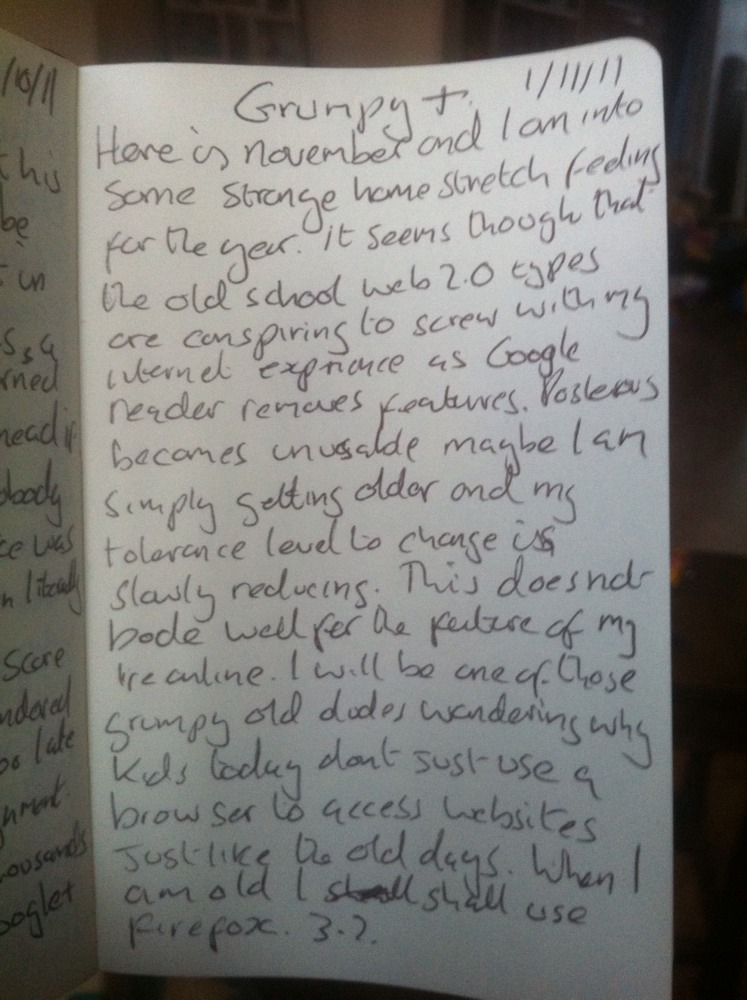 /10/11
this
be
in
rned
nead if
obody
ce was
n literally
Score
ndered
oo late
nment.
housands
oogle+
Grumpy +.
1/11/11
Here is november and I am into
some strange home stretch feeling
for the year. it seems though that
the old school web 2.0 types
are conspiring to screw with my
internet exprience as Google
reader removes features. Posterous
becomes unusable maybe I am
simply getting older and my
tolerance level to change is
slowly reducing. This doesnt
bode well for the future of my
life online. I will be one of those
grumpy old dudes wondering why
kids today dont just use a
browser to access websites
just like the old days. When I
am old I shall shall use
firefox. 3.2.